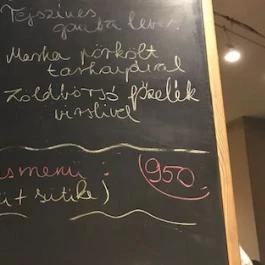 Tejszínes
gomba leves
Marha pörkölt
tarhonyával
Zöldborsó főzelék
virslivel
smenü: 950.-
+ sütike)